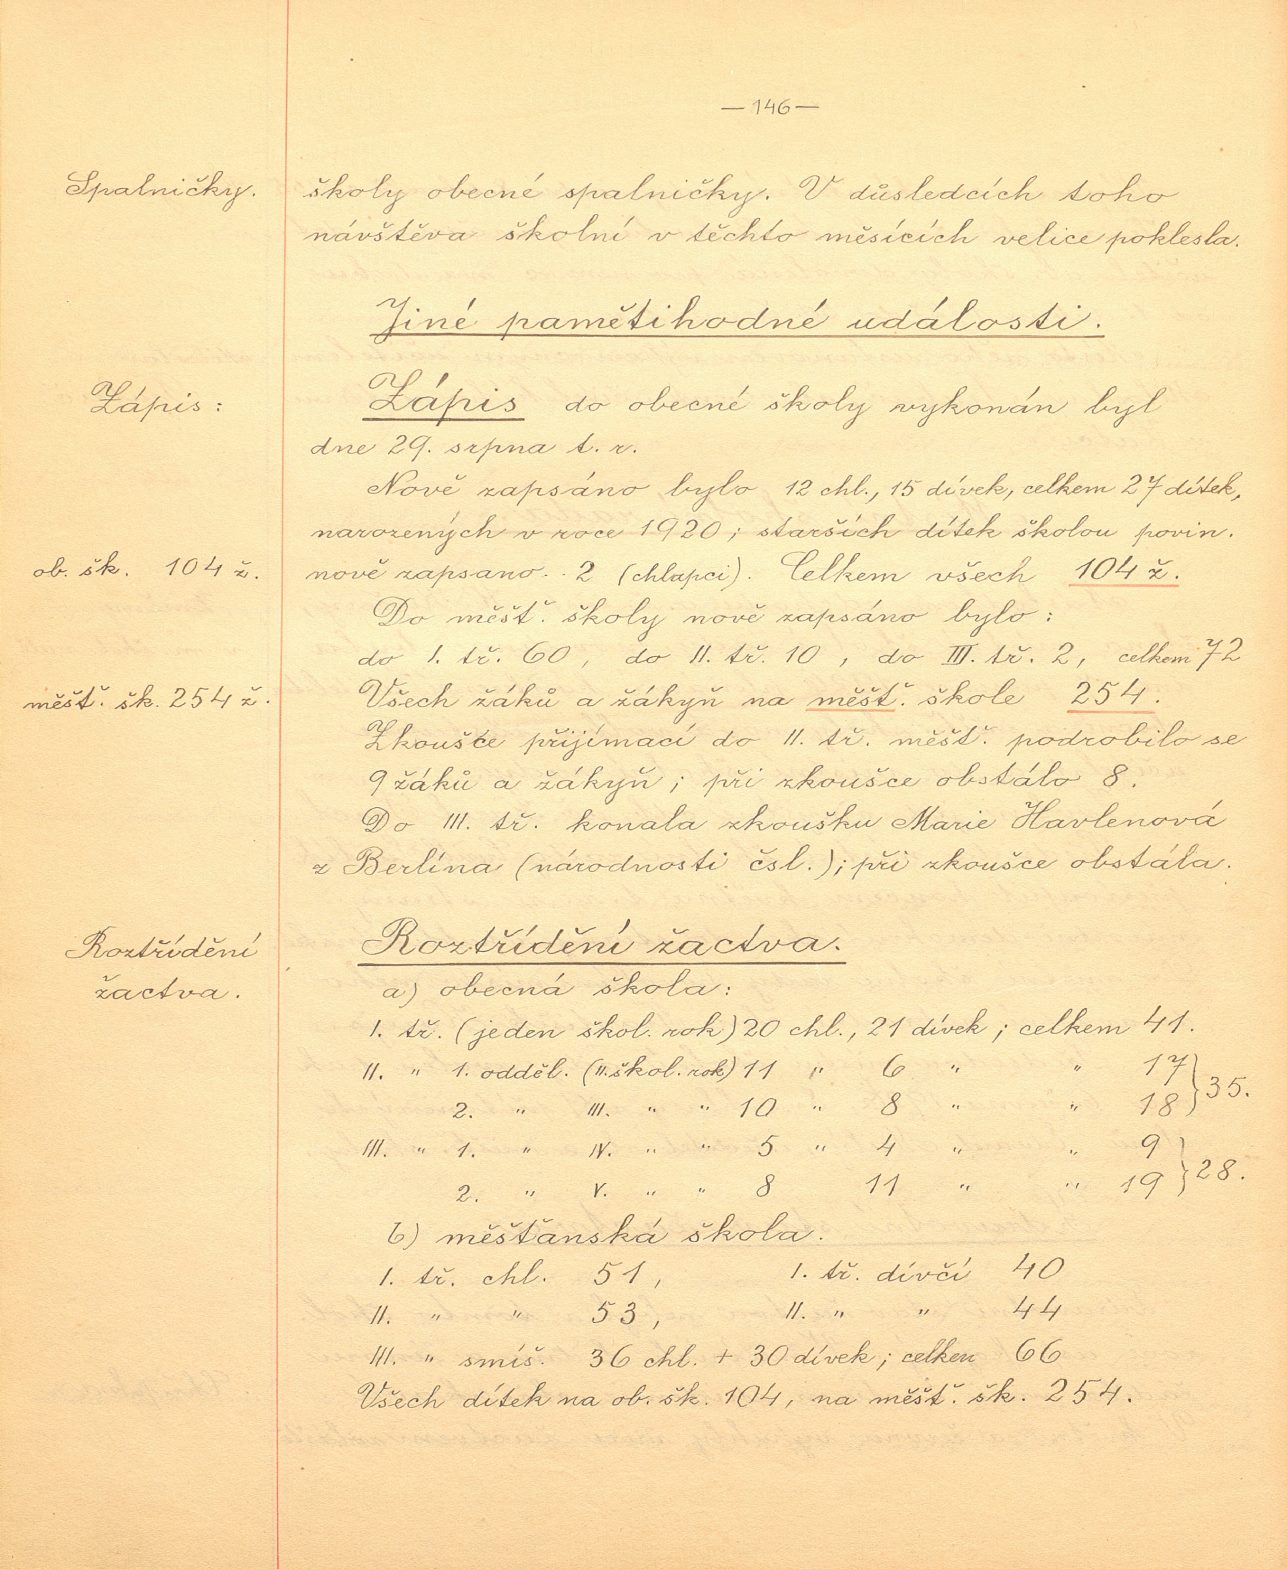 — 146 —
Spalničky.
školy obecné spalničky. V důsledcích toho
návštěva školní v těchto měsících velice poklesla.
Jiné pamětihodné události.
Zápis:
Zápis do obecné školy vykonán byl
dne 29. srpna t. r.
Nově zapsáno bylo 12 chl., 15 dívek, celkem 27 dítek,
narozených v roce 1920; starších dítek školou povin.
ob. šk. 104 ž.
nově zapsano.. 2 (chlapci). Celkem všech 104 ž.
Do měšť. školy nově zapsáno bylo:
do I. tř. 60, do II. tř. 10, do III. tř. 2, celkem 72
měšť. šk. 254 ž.
Všech žáků a žákyň na měšť. škole 254.
Zkoušce přijímací do II. tř. měšť. podrobilo se
9 žáků a žákyň; při zkoušce obstálo 8.
Do III. tř. konala zkoušku Marie Havlenová
z Berlína (národnosti čsl.); při zkoušce obstála.
Roztřídění
žactva.
Roztřídění žactva.
a) obecná škola:
I. tř. (jeden škol. rok) 20 chl., 21 dívek; celkem 41.
II. " 1. odděl. (II. škol. rok) 11 " 6 " " 17
2. " III. " " 10 " 8 " " 18 } 35.
III. " 1. " IV. " " 5 " 4 " " 9
2. " V. " " 8 11 " " 19 } 28.
b) měšťanská škola.
I. tř. chl. 51, I. tř. dívčí 40
II. " " 53, II. " " 44
III. " smíš. 36 chl. + 30 dívek; celken 66
Všech dítek na ob. šk. 104, na měšť. šk. 254.